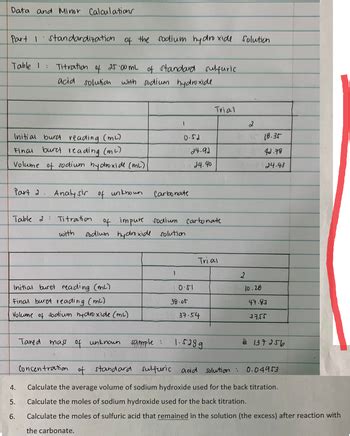 Data and Minor Calculations
Part 1 : Standardization of the sodium hydroxide solution
Table 1 : Titration of 25.00mL of standard sulfuric
acid solution with sodium hydroxide
Trial
1 2
Initial buret reading (mL) 0.52 18.35
Final buret reading (mL) 24.92 42.78
Volume of sodium hydroxide (mL) 24.40 24.43
Part 2 . Analysis of unknown Carbonate
Table 2 : Titration of impure sodium carbonate
with sodium hydroxide solution
Trial
1 2
Initial buret reading (mL) 0.51 10.28
Final buret reading (mL) 38.05 47.83
Volume of sodium hydroxide (mL) 37.54 37.55
Tared mass of unknown sample : 1.528g
Concentration of standard sulfuric acid solution : 0.04953
4. Calculate the average volume of sodium hydroxide used for the back titration.
5. Calculate the moles of sodium hydroxide used for the back titration.
6. Calculate the moles of sulfuric acid that remained in the solution (the excess) after reaction with
the carbonate.